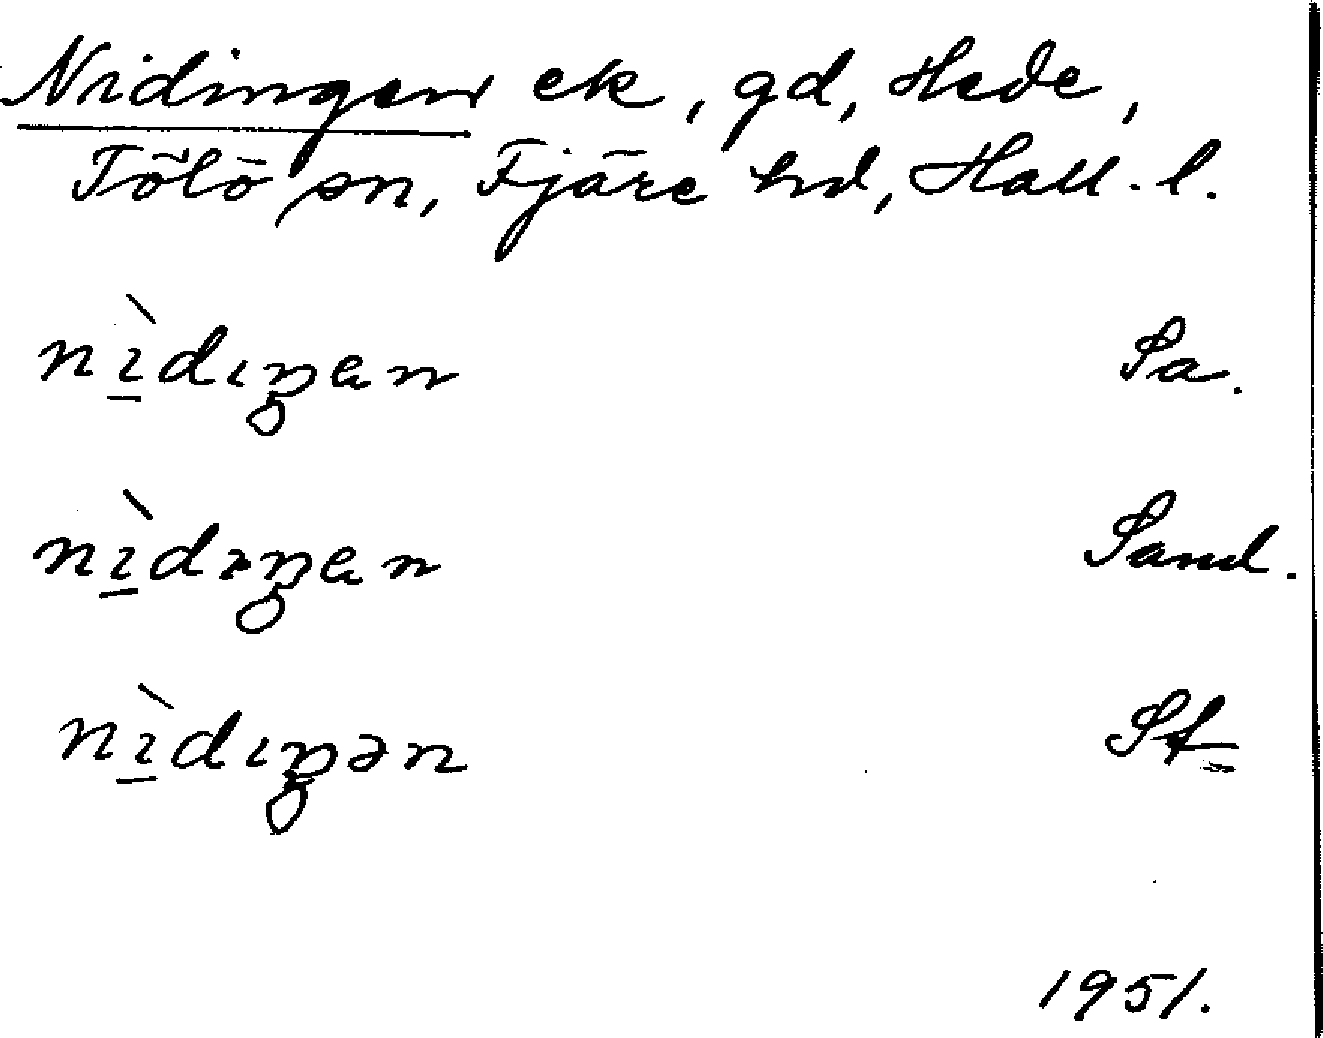 Nidingen ek, gd, Hede,
Tölö sn, Fjäre hd, Hall. l.
nı̱̀dıŋɐn Sa.
nı̱̀dıŋɐn Sand.
nı̱̀dıŋən St
1951.